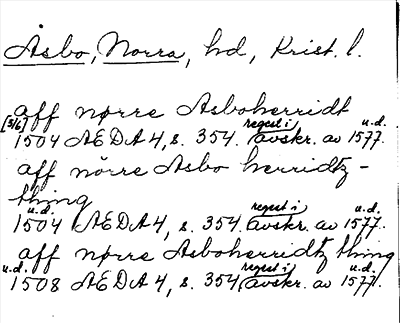 Åsbo, Norra, hd, Krist. l.
aff nørre Asboherridt
[3/6] 1504 ÆDA 4, s. 354. regest i avskr. av u.d. 1577.
aff nörre Asbo herridtz-
thing
u.d. 1504 ÆDA 4, s. 354. regest i avskr. av u.d. 1577.
aff nørre Asboherridtz thing
u.d. 1508 ÆDA 4, s. 354. regest i avskr. av u.d. 1577.